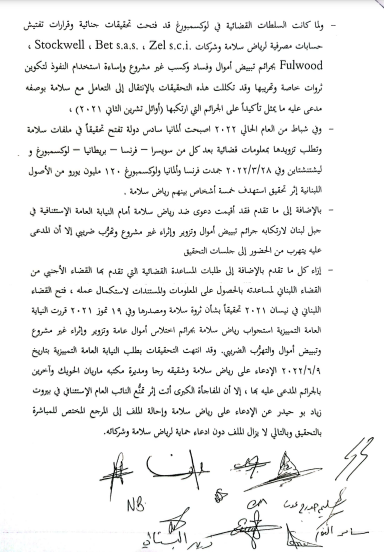 - ولما كانت السلطات القضائية في لوكسمبورغ قد فتحت تحقيقات جنائية وقرارات تفتيش
حسابات مصرفية لرياض سلامة وشركات Stockwell ، Bet s.a.s. ، Zel s.c.i. ،
Fulwood بجرائم تبييض أموال وفساد وكسب غير مشروع وإساءة استخدام النفوذ لتكوين
ثروات خاصة وتهريبها وقد تكللت هذه التحقيقات بالإنتقال إلى التعامل مع سلامة بوصفه
مدعى عليه ما يمثل تأكيداً على الجرائم التي ارتكبها (أوائل تشرين الثاني ٢٠٢١) ،
- وفي شباط من العام الحالي ٢٠٢٢ اصبحت ألمانيا سادس دولة تفتح تحقيقاً في ملفات سلامة
وتطلب تزويدها بمعلومات قضائية بعد كل من سويسرا – فرنسا – بريطانيا – لوكسمبورغ و
ليشتنشتاين وفي ٢٠٢٢/٣/٢٨ جمدت فرنسا وألمانيا ولوكسمبورغ ١٢٠ مليون يورو من الأصول
اللبنانية إثر تحقيق استهدف خمسة أشخاص بينهم رياض سلامة .
- بالإضافة إلى ما تقدم فقد أقيمت دعوى ضد رياض سلامة أمام النيابة العامة الإستئنافية في
جبل لبنان لارتكابه جرائم تبييض أموال وتزوير وإثراء غير مشروع وتهرُّب ضريبي إلا أن المدعى
عليه يتهرب من الحضور إلى جلسات التحقيق
- إزاء كل ما تقدم بالإضافة إلى طلبات المساعدة القضائية التي تقدم بها القضاء الأجنبي من
القضاء اللبناني لمساعدته بالحصول على المعلومات والمستندات لاستكمال عمله ، فتح القضاء
اللبناني في نيسان ٢٠٢١ تحقيقاً بشأن ثروة سلامة ومصدرها وفي ١٩ تموز ٢٠٢١ قررت النيابة
العامة التمييزية استجواب رياض سلامة بجرائم اختلاس أموال عامة وتزوير وإثراء غير مشروع
وتبييض أموال والتهرُّب الضريبي. وقد انتهت التحقيقات بطلب النيابة العامة التمييزية بتاريخ
٢٠٢٢/٦/٩ الإدعاء على رياض سلامة وشقيقه رجا ومديرة مكتبه ماريان الحويك وآخرين
بالجرائم المدعى عليه بها ، إلا أن المفاجأة الكبرى أتت إثر تمنُّع النائب العام الإستئنافي في بيروت
زياد بو حيدر عن الإدعاء على رياض سلامة وإحالة الملف إلى المرجع المختص للمباشرة
بالتحقيق وبالتالي لا يزال الملف دون ادعاء حماية لرياض سلامة وشركائه.
NB